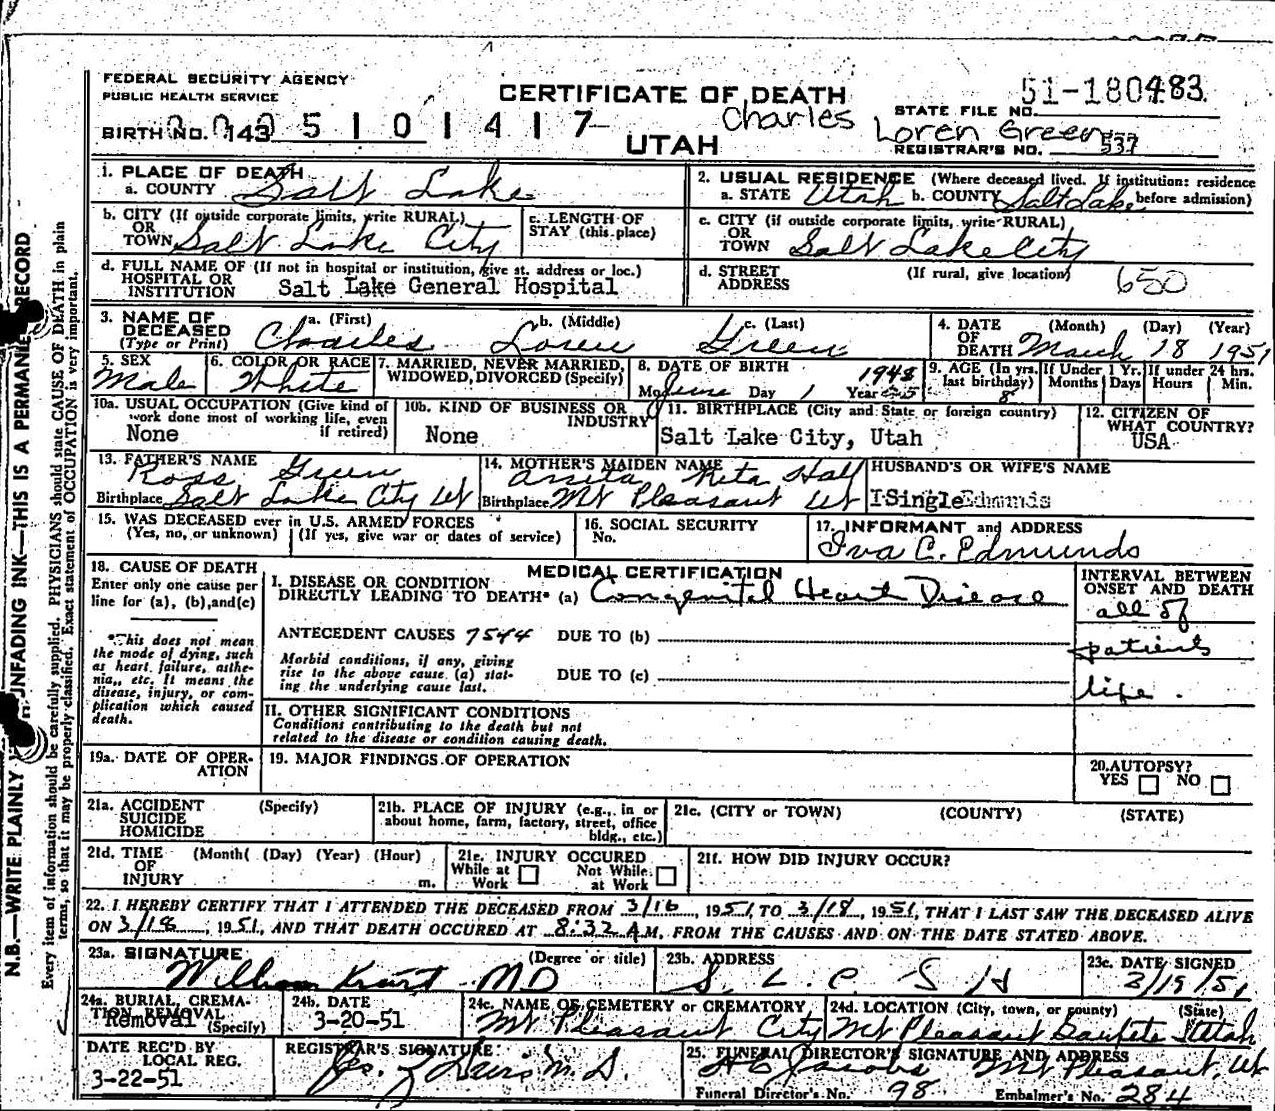 FEDERAL SECURITY AGENCY
PUBLIC HEALTH SERVICE
CERTIFICATE OF DEATH
51-180483
STATE FILE NO.
BIRTH NO. 143 5 1 0 1 4 1 7
UTAH
Charles Loren Green
REGISTRAR'S NO. 537
1. PLACE OF DEATH
a. COUNTY Salt Lake
2. USUAL RESIDENCE (Where deceased lived. If institution: residence before admission)
a. STATE Utah b. COUNTY Salt Lake
b. CITY (If outside corporate limits, write RURAL) OR TOWN Salt Lake City
c. LENGTH OF STAY (this place)
c. CITY (if outside corporate limits, write RURAL) OR TOWN Salt Lake City
d. FULL NAME OF (If not in hospital or institution, give st. address or loc.) HOSPITAL OR INSTITUTION Salt Lake General Hospital
d. STREET ADDRESS (If rural, give location) 650
3. NAME OF DECEASED (Type or Print) a. (First) Charles b. (Middle) Loren c. (Last) Green
4. DATE OF DEATH (Month) (Day) (Year) March 18 1951
5. SEX Male
6. COLOR OR RACE White
7. MARRIED, NEVER MARRIED, WIDOWED, DIVORCED (Specify)
8. DATE OF BIRTH Mo. June Day 1 Year 1948
9. AGE (In yrs. last birthday) 8 If Under 1 Yr. Months Days If under 24 hrs. Hours Min.
10a. USUAL OCCUPATION (Give kind of work done most of working life, even if retired) None
10b. KIND OF BUSINESS OR INDUSTRY None
11. BIRTHPLACE (City and State or foreign country) Salt Lake City, Utah
12. CITIZEN OF WHAT COUNTRY? USA
13. FATHER'S NAME Ross Green
Birthplace Salt Lake City Ut
14. MOTHER'S MAIDEN NAME Rita Hall
Birthplace Mt Pleasant Ut
HUSBAND'S OR WIFE'S NAME
Single Edmunds
15. WAS DECEASED ever in U.S. ARMED FORCES
(Yes, no, or unknown) (If yes, give war or dates of service)
16. SOCIAL SECURITY No.
17. INFORMANT and ADDRESS
Iva C. Edmunds
18. CAUSE OF DEATH
Enter only one cause per line for (a), (b), and (c)
*This does not mean the mode of dying, such as heart failure, asthenia, etc. It means the disease, injury, or complication which caused death.
MEDICAL CERTIFICATION
I. DISEASE OR CONDITION DIRECTLY LEADING TO DEATH* (a) Congenital Heart Disease
ANTECEDENT CAUSES 7544 DUE TO (b)
Morbid conditions, if any, giving rise to the above cause (a) stating the underlying cause last. DUE TO (c)
INTERVAL BETWEEN ONSET AND DEATH
all of patients life.
II. OTHER SIGNIFICANT CONDITIONS
Conditions contributing to the death but not related to the disease or condition causing death.
19a. DATE OF OPERATION
19. MAJOR FINDINGS OF OPERATION
20. AUTOPSY? YES NO
21a. ACCIDENT SUICIDE HOMICIDE (Specify)
21b. PLACE OF INJURY (e.g., in or about home, farm, factory, street, office bldg., etc.)
21c. (CITY or TOWN) (COUNTY) (STATE)
21d. TIME OF INJURY (Month) (Day) (Year) (Hour) m.
21e. INJURY OCCURED While at Work Not While at Work
21f. HOW DID INJURY OCCUR?
22. I HEREBY CERTIFY THAT I ATTENDED THE DECEASED FROM 3/16, 1951, TO 3/18, 1951, THAT I LAST SAW THE DECEASED ALIVE
ON 3/18, 1951, AND THAT DEATH OCCURED AT 8:32 A M, FROM THE CAUSES AND ON THE DATE STATED ABOVE.
23a. SIGNATURE (Degree or title) William MD
23b. ADDRESS S. L. C. G H
23c. DATE SIGNED 3/19/51
24a. BURIAL, CREMATION, REMOVAL (Specify) Removal
24b. DATE 3-20-51
24c. NAME OF CEMETERY or CREMATORY Mt Pleasant City
24d. LOCATION (City, town, or county) (State) Mt Pleasant Sanpete Utah
DATE REC'D BY LOCAL REG. 3-22-51
REGISTRAR'S SIGNATURE M.D.
25. FUNERAL DIRECTOR'S SIGNATURE AND ADDRESS
Jacobs Mt Pleasant, Ut
Funeral Director's No. 98 Embalmer's No. 284
N.B.—WRITE PLAINLY UNFADING INK—THIS IS A PERMANENT RECORD
Every item of information should be carefully supplied. PHYSICIANS should state CAUSE OF DEATH in plain
terms, so that it may be properly classified. Exact statement of OCCUPATION is very important.